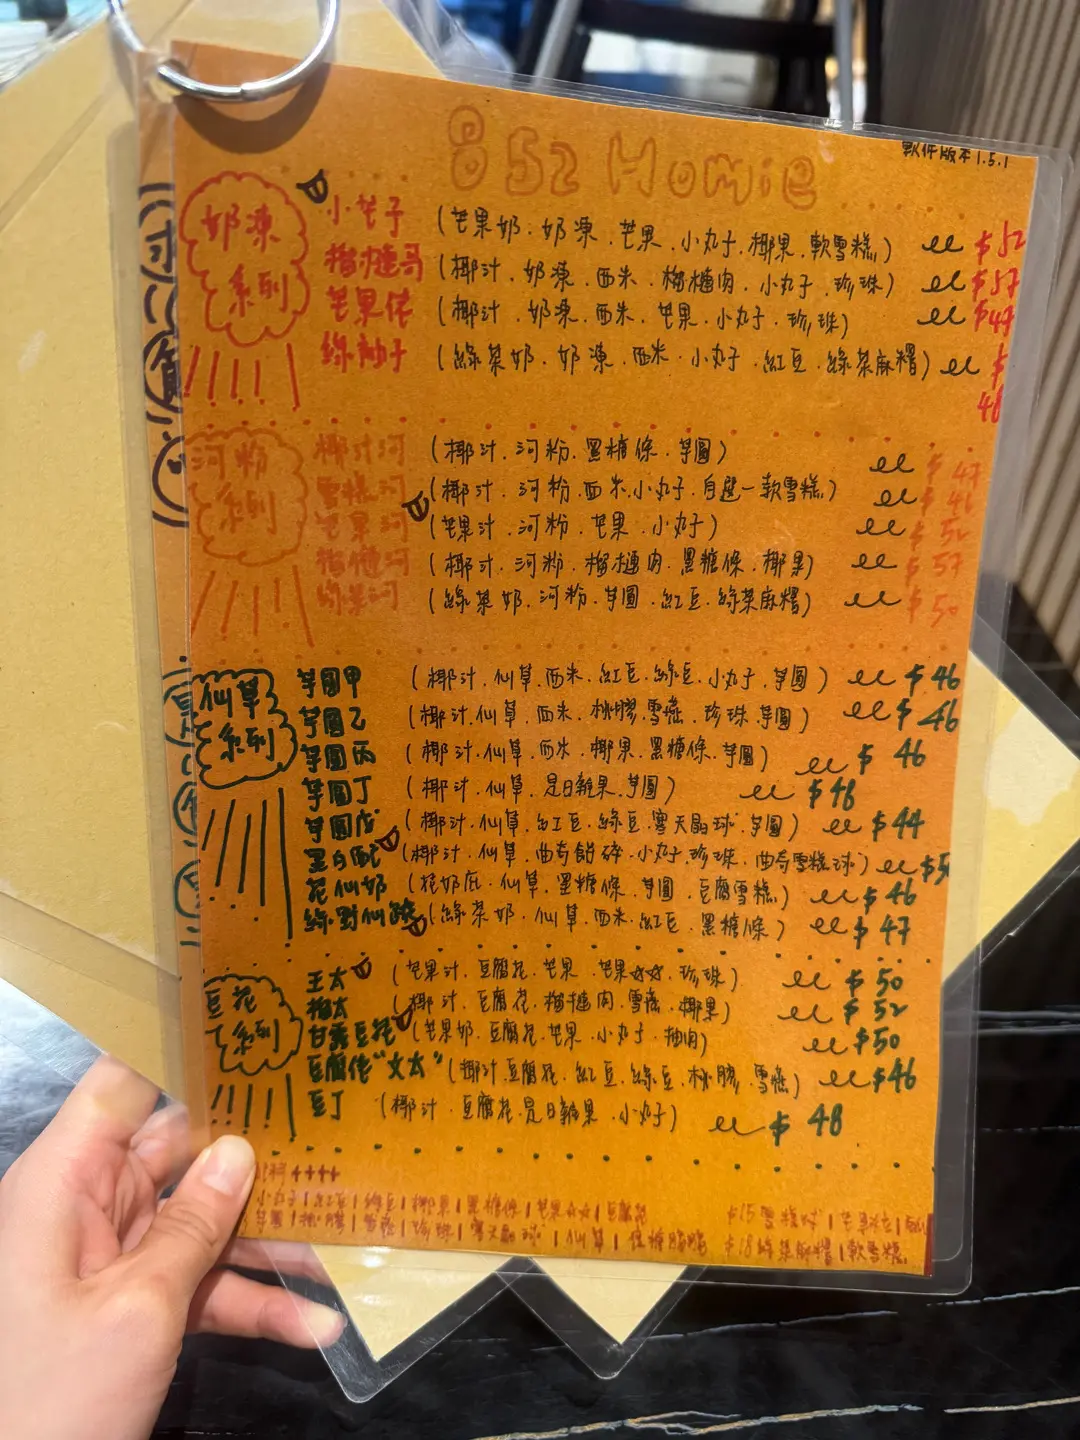 852 Homie
軟件版本1.5.1
奶凍系列
小芒子 (芒果奶.奶凍.芒果.小丸子.椰果.軟雪糕) $52
榴槤哥 (椰汁.奶凍.西米.榴槤肉.小丸子.珍珠) $57
芒果佬 (椰汁.奶凍.西米.芒果.小丸子.珍珠) $47
綠柚子 (綠茶奶.奶凍.西米.小丸子.紅豆.綠茶麻糬) $48
河粉系列
椰汁河 (椰汁.河粉.黑糖條.芋圓) $47
雪糕河 (椰汁.河粉.西米.小丸子.自選一軟雪糕) $46
芒果河 (芒果汁.河粉.芒果.小丸子) $52
榴槤河 (椰汁.河粉.榴槤肉.黑糖條.椰果) $57
綠茶河 (綠茶奶.河粉.芋圓.紅豆.綠茶麻糬) $50
仙草系列
芋圓甲 (椰汁.仙草.西米.紅豆.綠豆.小丸子.芋圓) $46
芋圓乙 (椰汁.仙草.西米.桃膠.雪燕.珍珠.芋圓) $46
芋圓丙 (椰汁.仙草.西米.椰果.黑糖條.芋圓) $46
芋圓丁 (椰汁.仙草.是日雜果.芋圓) $48
芋圓戊 (椰汁.仙草.紅豆.綠豆.寒天晶球.芋圓) $44
黑白配 (椰汁.仙草.曲奇餅碎.小丸子.珍珠.曲奇雪糕球)
花仙奶 (花奶底.仙草.黑糖條.芋圓.豆腐雪糕) $46
綠野仙蹤 (綠茶奶.仙草.西米.紅豆.黑糖條) $47
豆花系列
王太 (芒果汁.豆腐花.芒果.芒果☆☆.珍珠) $50
榴太 (椰汁.豆腐花.榴槤肉.雪燕.椰果) $52
甘露豆花 (芒果奶.豆腐花.芒果.小丸子.柚肉) $50
豆腐佬"文太" (椰汁.豆腐花.紅豆.綠豆.桃膠.雪燕) $46
豆丁 (椰汁.豆腐花.是日雜果.小丸子) $48
小丸子|紅豆|綠豆|椰果|黑糖條|芒果☆☆|豆腐花
芋圓|桃膠|雪燕|珍珠|寒天晶球|仙草
$15雪糕球|芒果冰
$18綠茶麻糬|軟雪糕